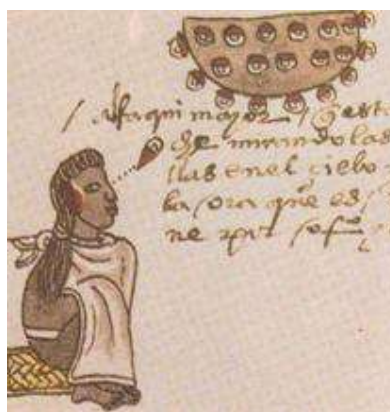 / alfaqui mayor / q est
che mirando las
llas en el çielo
la ora que es
ne por ofio